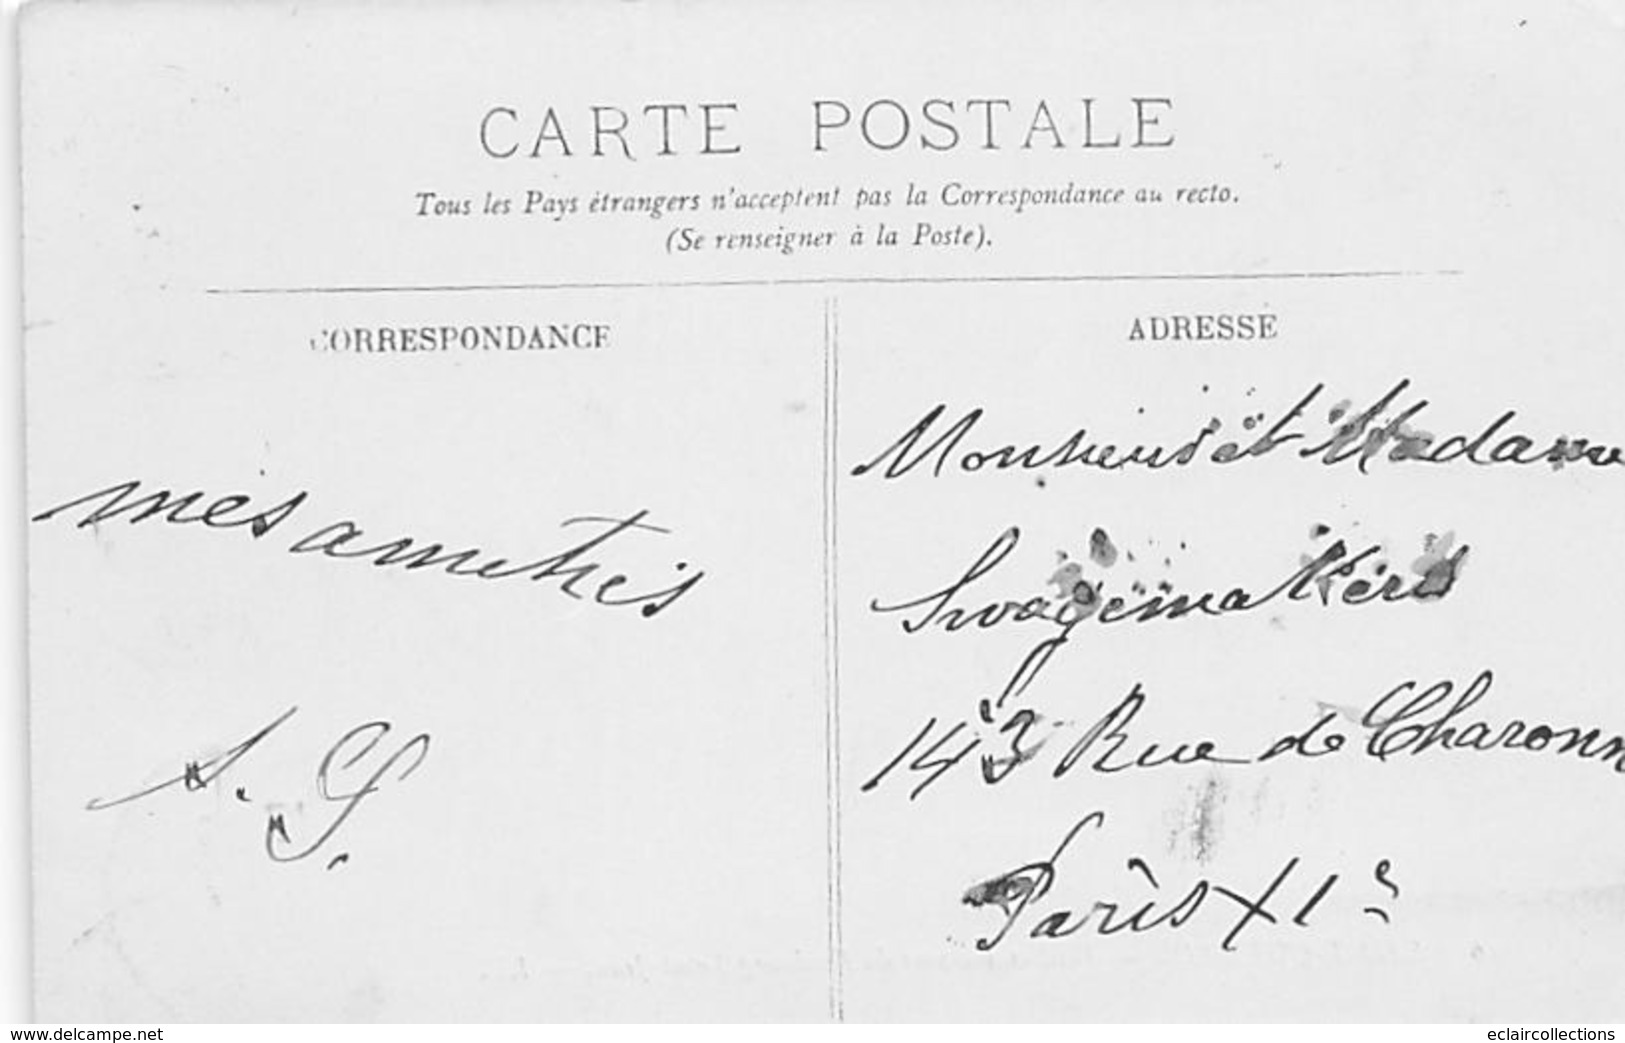 CARTE POSTALE
Tous les Pays étrangers n'acceptent pas la Correspondance au recto.
(Se renseigner à la Poste).
CORRESPONDANCE
mes amitiés
A. S.
ADRESSE
Monsieur et Madame
Swagemakers
143 Rue de Charonn
Paris XIe
www.delcampe.net
eclaircollections